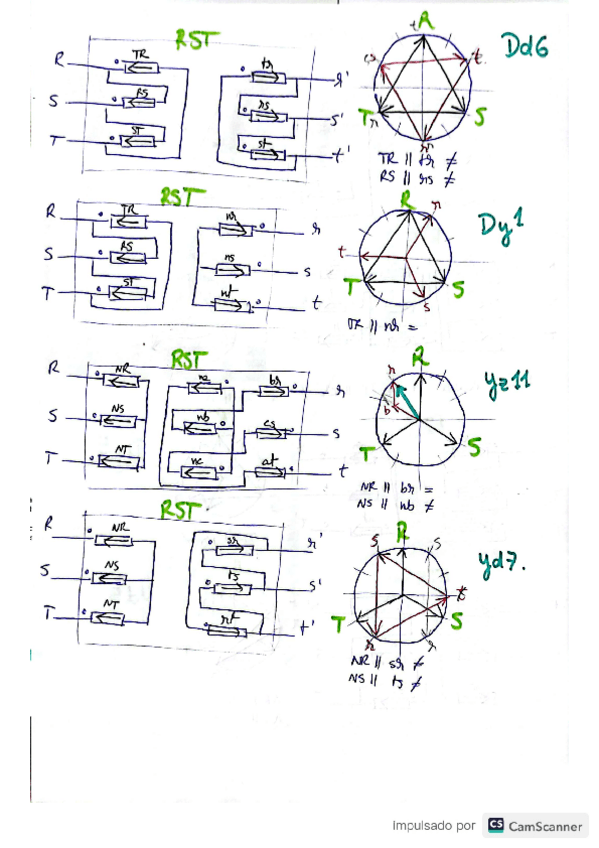 RST
R TR tr r'
S RS rs s'
T ST st t'
R t S Tr r
Dd6
TR || tr ≠
RS || rs ≠
RST
R TR nr r
S RS ns s
T ST nt t
R r t T S s
Dy1
nr =
RST
R NR br r
S NS nb cs s
T NT nc at t
R r b T S
Yz11
NR || br =
NS || nb ≠
RST
R NR sr r'
S NS ts s'
T NT rt t'
R s s T S r r
Yd7.
NR || sr ≠
NS || ts ≠
Impulsado por CS CamScanner